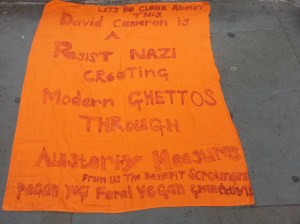 LETS BE CLEAR ABOUT
THIS
David Cameron is
A
RESIST NAZI
CREATING
Modern GHETTOS
THROUGH
Austerity Measures
From us The Benefit Scroungers
pagan yogi Feral vegan